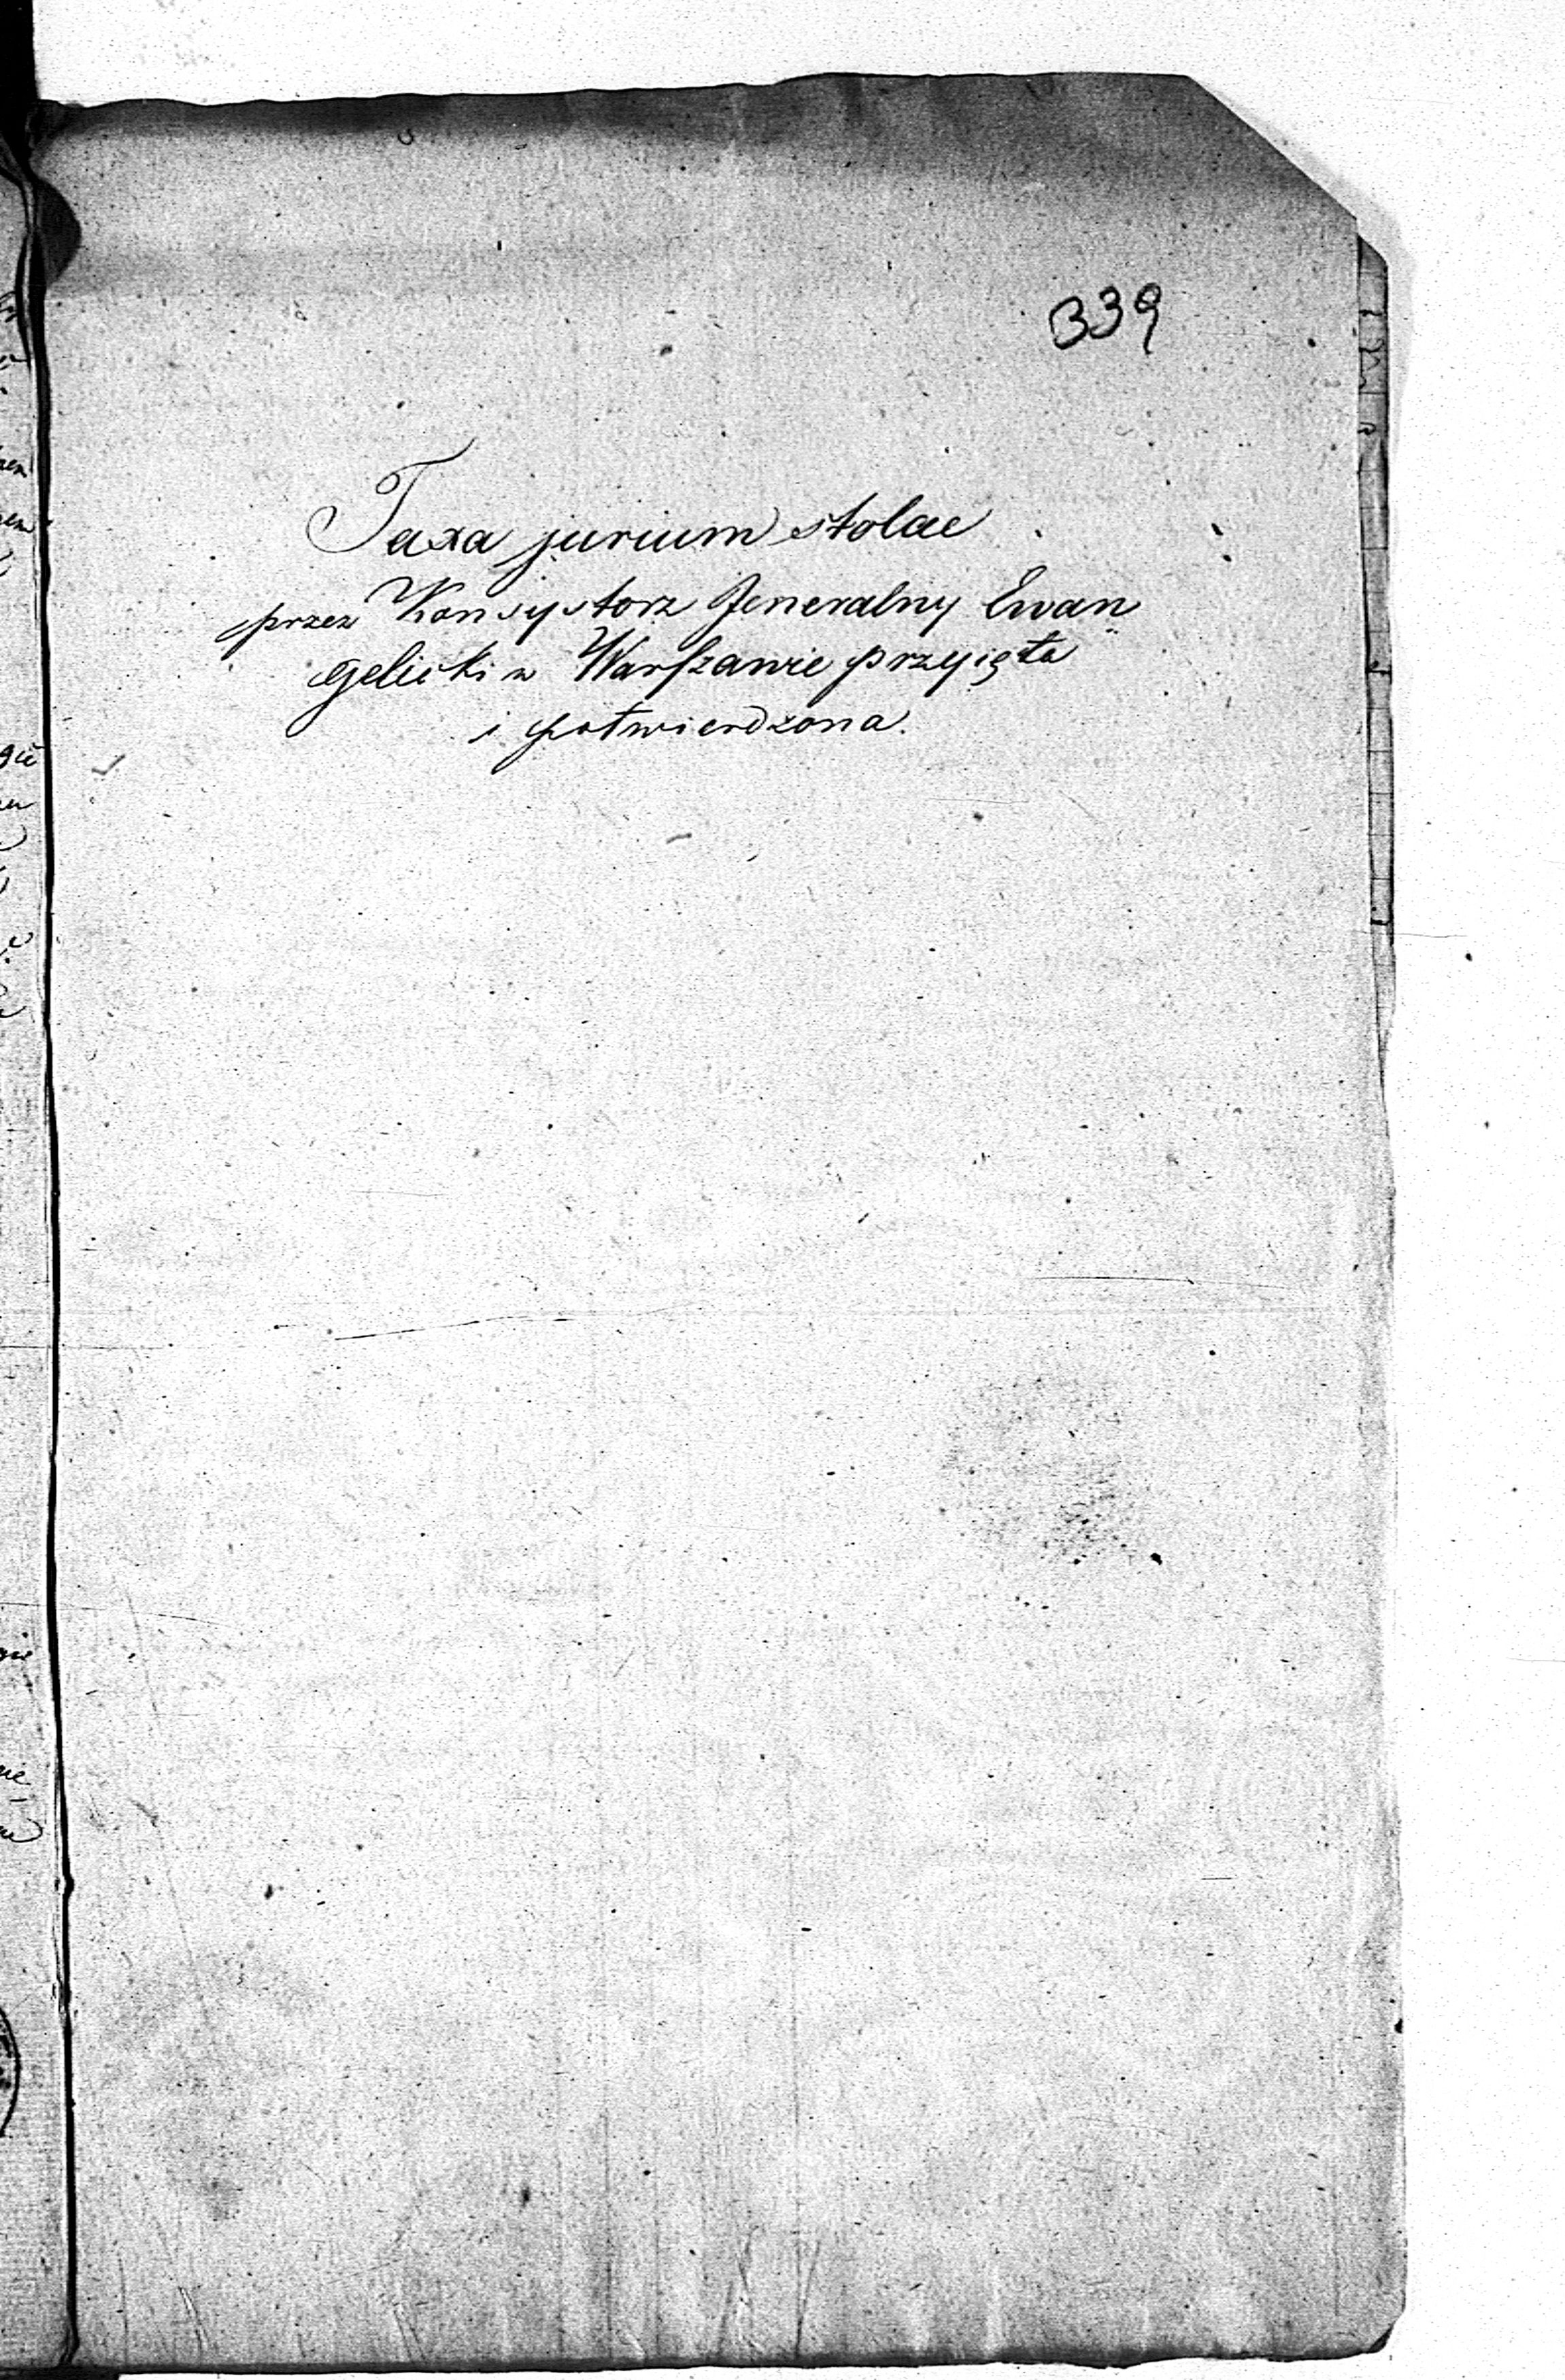 339
Taxa jurium stolae
przez Konsystorz Jeneralny Ewan
gelicki w Warszawie przyięta
i potwierdzona.